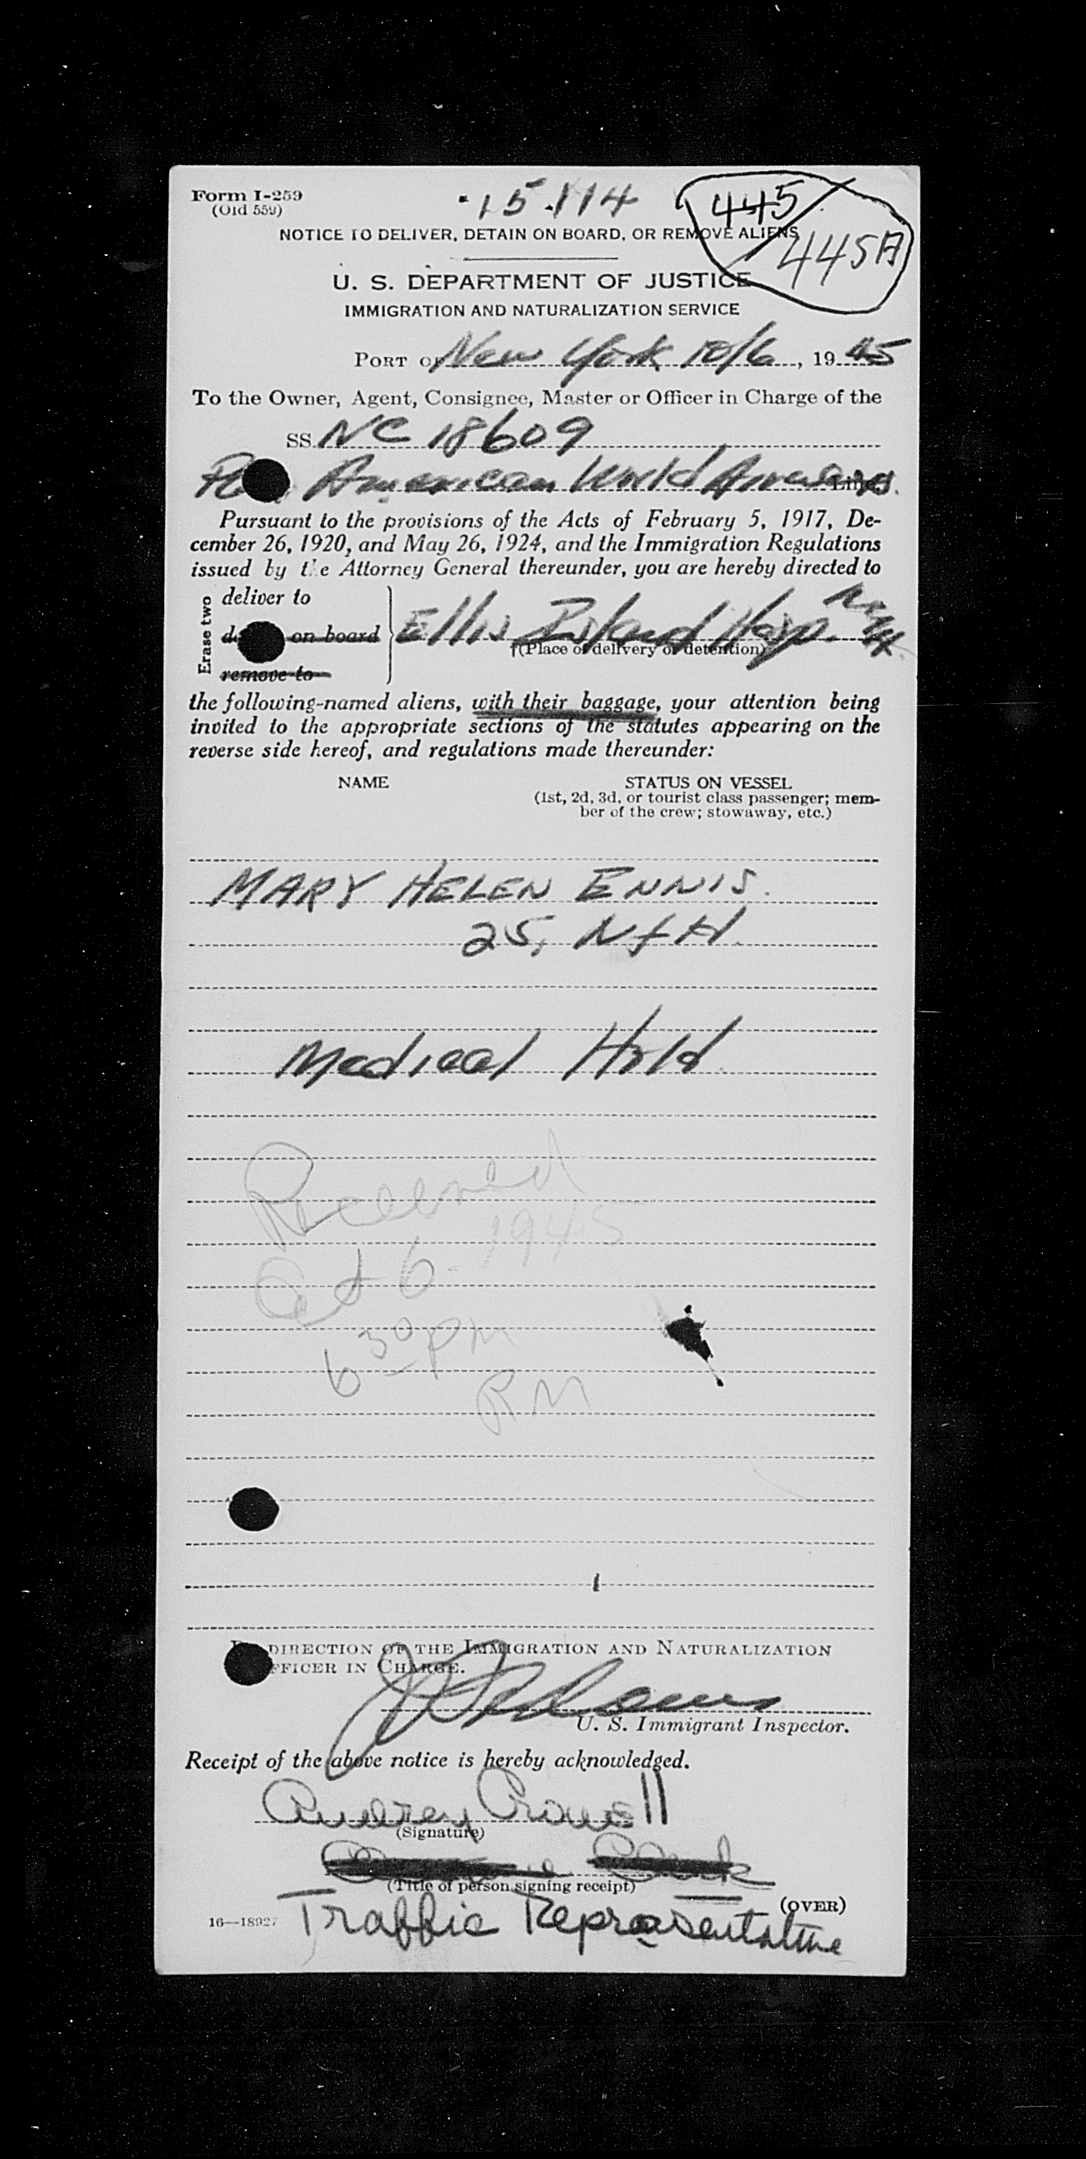 Form I-259
(Old 559)
15.114
445
445A
NOTICE TO DELIVER, DETAIN ON BOARD, OR REMOVE ALIENS
U. S. DEPARTMENT OF JUSTICE
IMMIGRATION AND NATURALIZATION SERVICE
PORT OF New York 10/6, 1945
To the Owner, Agent, Consignee, Master or Officer in Charge of the
SS. NC 18609
American World Airways Line.
Pursuant to the provisions of the Acts of February 5, 1917, De-
cember 26, 1920, and May 26, 1924, and the Immigration Regulations
issued by the Attorney General thereunder, you are hereby directed to
Erase two
deliver to
on board
remove to
Ellis Island Hosp. N.Y.H.
(Place of delivery or detention)
the following-named aliens, with their baggage, your attention being
invited to the appropriate sections of the statutes appearing on the
reverse side hereof, and regulations made thereunder:
NAME STATUS ON VESSEL
(1st, 2d, 3d, or tourist class passenger; mem-
ber of the crew; stowaway, etc.)
MARY HELEN ENNIS.
25, NfH.
Medical Hold.
Received
Oct 6 - 1945
6 30 pm
RM
DIRECTION OF THE IMMIGRATION AND NATURALIZATION
OFFICER IN CHARGE.
U. S. Immigrant Inspector.
Receipt of the above notice is hereby acknowledged.
Audrey Crowell
(Signature)
Clerk
(Title of person signing receipt)
Traffic Representative
(OVER)
16—18927